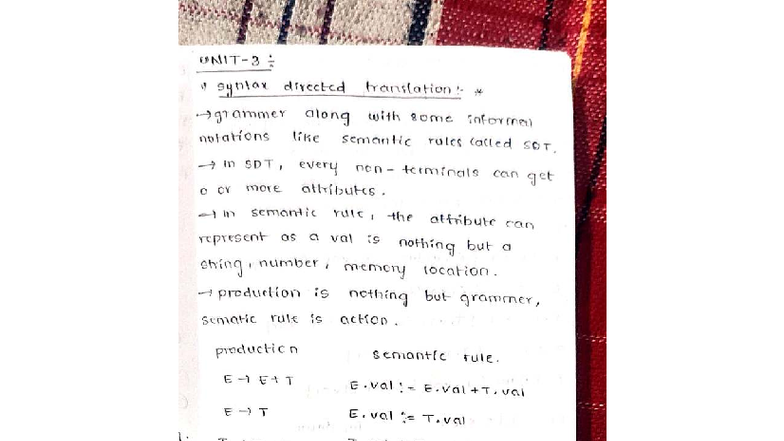 UNIT-3 :
* syntax directed translation :- *
→ grammer along with some informal
notations like semantic rules called SDT.
→ In SDT, every non-terminals can get
0 or more attributes.
→ In semantic rule, the attribute can
represent as a val is nothing but a
string, number, memory location.
→ production is nothing but grammer,
sematic rule is action.
production semantic rule.
E → E+T E.val := E.val + T.val
E → T E.val := T.val